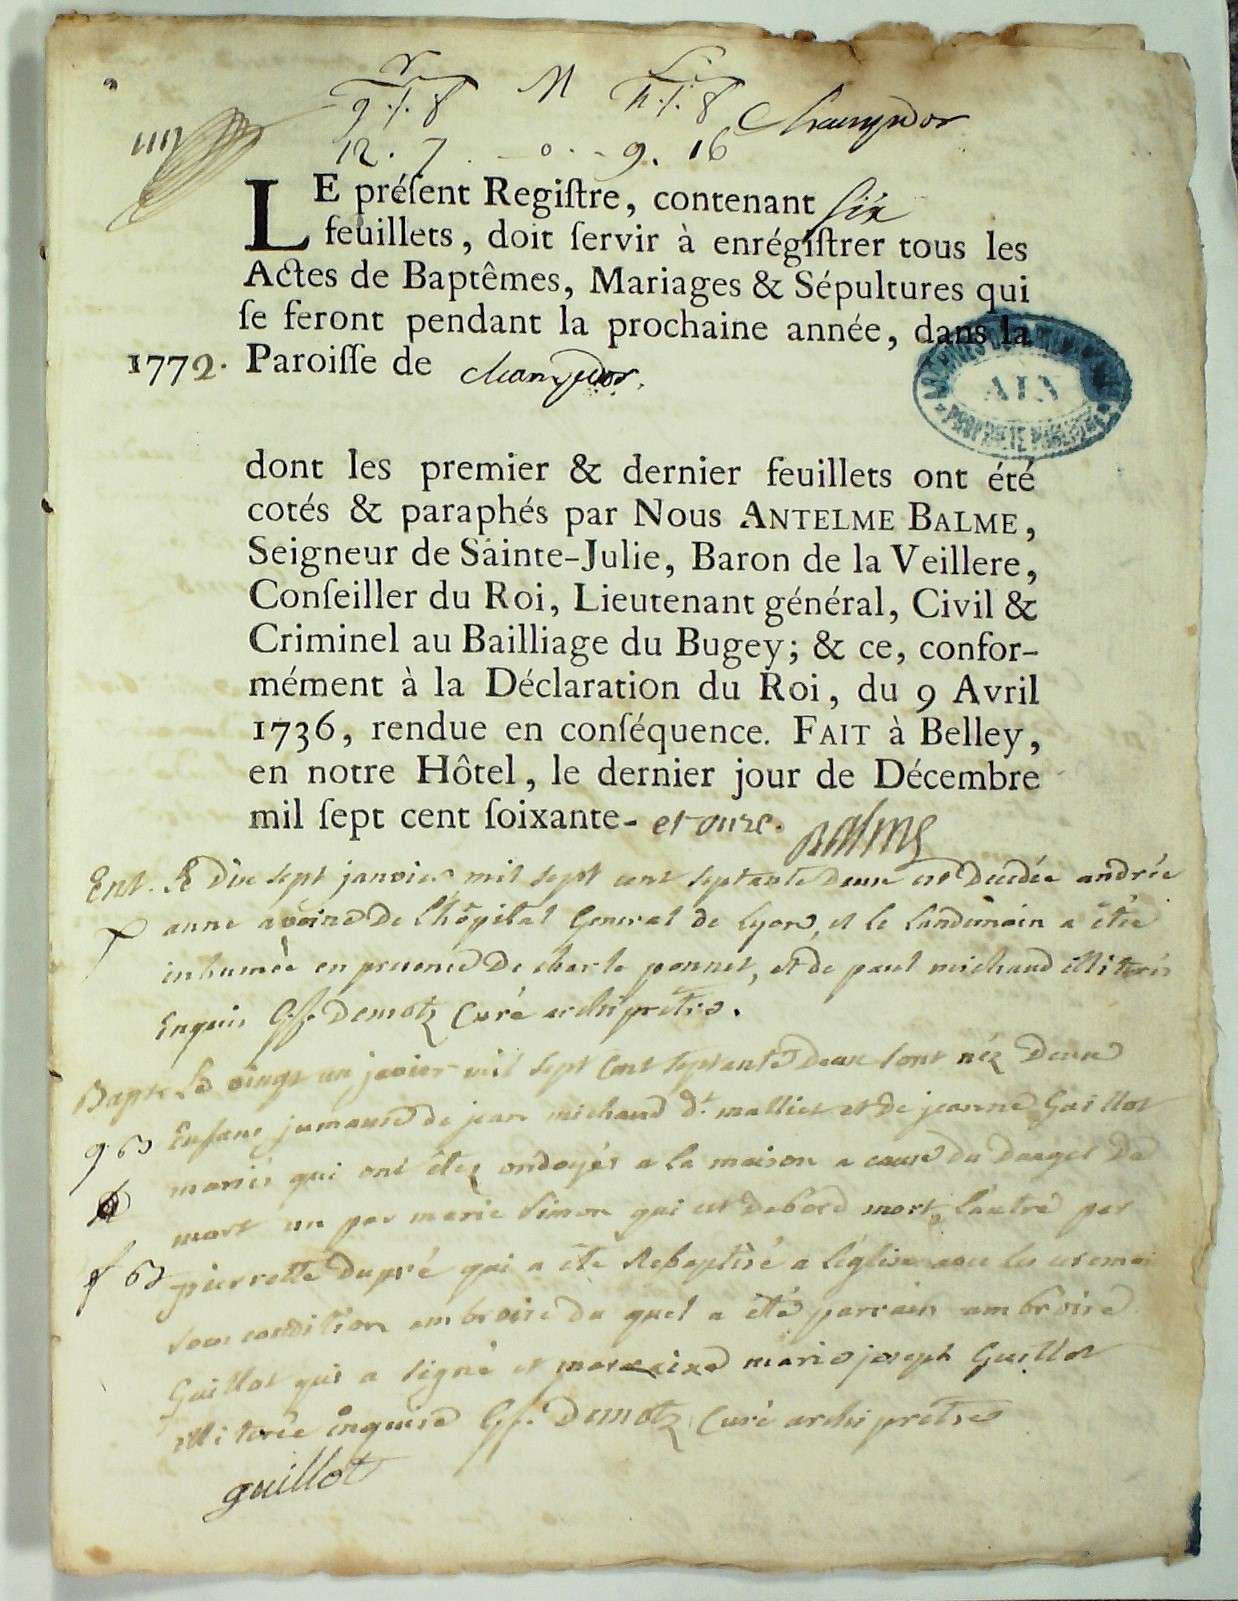 M
9. 5. 8
12. 7
9. 16
Champdor
LE préſent Regiſtre, contenant six
feuillets, doit ſervir à enrégiſtrer tous les
Actes de Baptêmes, Mariages & Sépultures qui
ſe feront pendant la prochaine année, dans la
1772. Paroiſſe de champdor.
AIN
dont les premier & dernier feuillets ont été
cotés & paraphés par Nous ANTELME BALME,
Seigneur de Sainte-Julie, Baron de la Veillere,
Conſeiller du Roi, Lieutenant général, Civil &
Criminel au Bailliage du Bugey; & ce, confor-
mément à la Déclaration du Roi, du 9 Avril
1736, rendue en conſéquence. FAIT à Belley,
en notre Hôtel, le dernier jour de Décembre
mil ſept cent ſoixante- et onze. Balme
Ent. Le dix sept janvier mil sept cent septante deux est decedée andrée
anne de l'hôpital General de Lyon, et le landemain a étée
inhumée en presence de charle ponnet, et de paul michaud illiterés
Enquis Demotz Curé archiprêtre.
Bapt. Le vingt un janvier mil sept cent septante deux sont néz deux
Enfans jumaux de jean michaud dt. malliet et de jeanne Guillot
mariés qui ont étez ondoyés a la maison a cause du danger de
mort un par marie simon qui est dabord mort, l'autre par
pierrette dupré qui a été Rebaptisé a l'église
sous condition ambroise du quel a été parrain ambroise
Guillot qui a signé et marraine marie joseph Guillot
illiterée enquise Demotz Curé archiprêtre
guillot